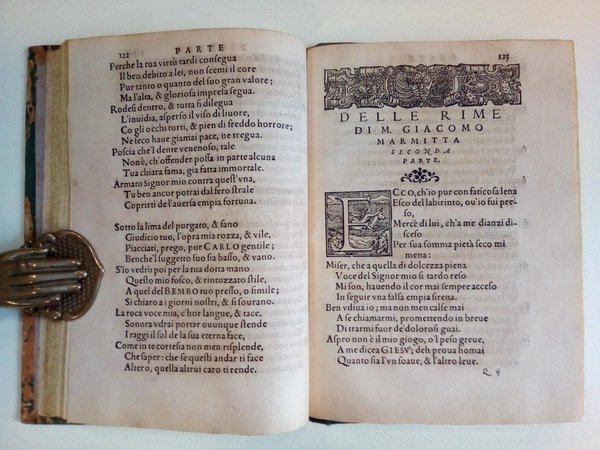 122 PARTE
Perche la tua virtù tardi consegua
Il ben debito a lei, non scemi il core
Pur tanto o quanto del suo gran valore;
Ma l'alta, & gloriosa impresa segua.
Rodesi dentro, & tutta si dilegua
L'inuidia, asperso il viso di liuore,
Co gli occhi torti, & pien di freddo horrore;
Ne seco haue giamai pace, ne tregua.
Poscia che'l dente venenoso, tale
Non è, ch'offender possa in parte alcuna
Tua chiara fama, gia fatta immortale.
Armato Signor mio contra quest'vna,
Tu ben ancor potrai dal fero strale
Coprirti de l'auersa empia fortuna.
Sotto la lima del purgato, & sano
Giudicio tuo, l'opra mia rozza, & vile,
Piacciati, prego, por CARLO gentile;
Benche'l suggetto suo sia basso, & vano.
S'io vedrò poi per la tua dotta mano
Questo mio fosco, & rintuzzato stile,
A quel del BEMBO tuo presso, o simile;
Si chiaro a i giorni nostri, & si sourano.
La roca voce mia, c'hor langue, & tace,
Sonora vdrai portar ouunque stende
I raggi il sol de la sua eterna face,
Come in te cortesia non men risplende,
Che saper: che se questi andar ti face
Altero, quella altrui caro ti rende.
123
DELLE RIME
DI M. GIACOMO
MARMITTA
SECONDA
PARTE.
ECCO, ch'io pur con faticosa lena
Esco del labirinto, ou'io fui pre-
so,
Mercè di lui, ch'a me dianzi di-
sceso
Per sua somma pietà seco mi
mena:
Miser, che a quella di dolcezza piena
Voce del Signor mio sì tardo reso
Mi son, hauendo il cor mai sempre acceso
In seguir vna falsa empia sirena.
Ben vdiua io; ma non men calse mai
A se chiamarmi, promettendo in breue
Di trarmi fuor de'dolorosi guai.
Aspro non è il mio giogo, o'l peso greue,
A me dicea GIESV; deh proua homai
Quanto sia l'vn soaue, & l'altro leue.
Q ij